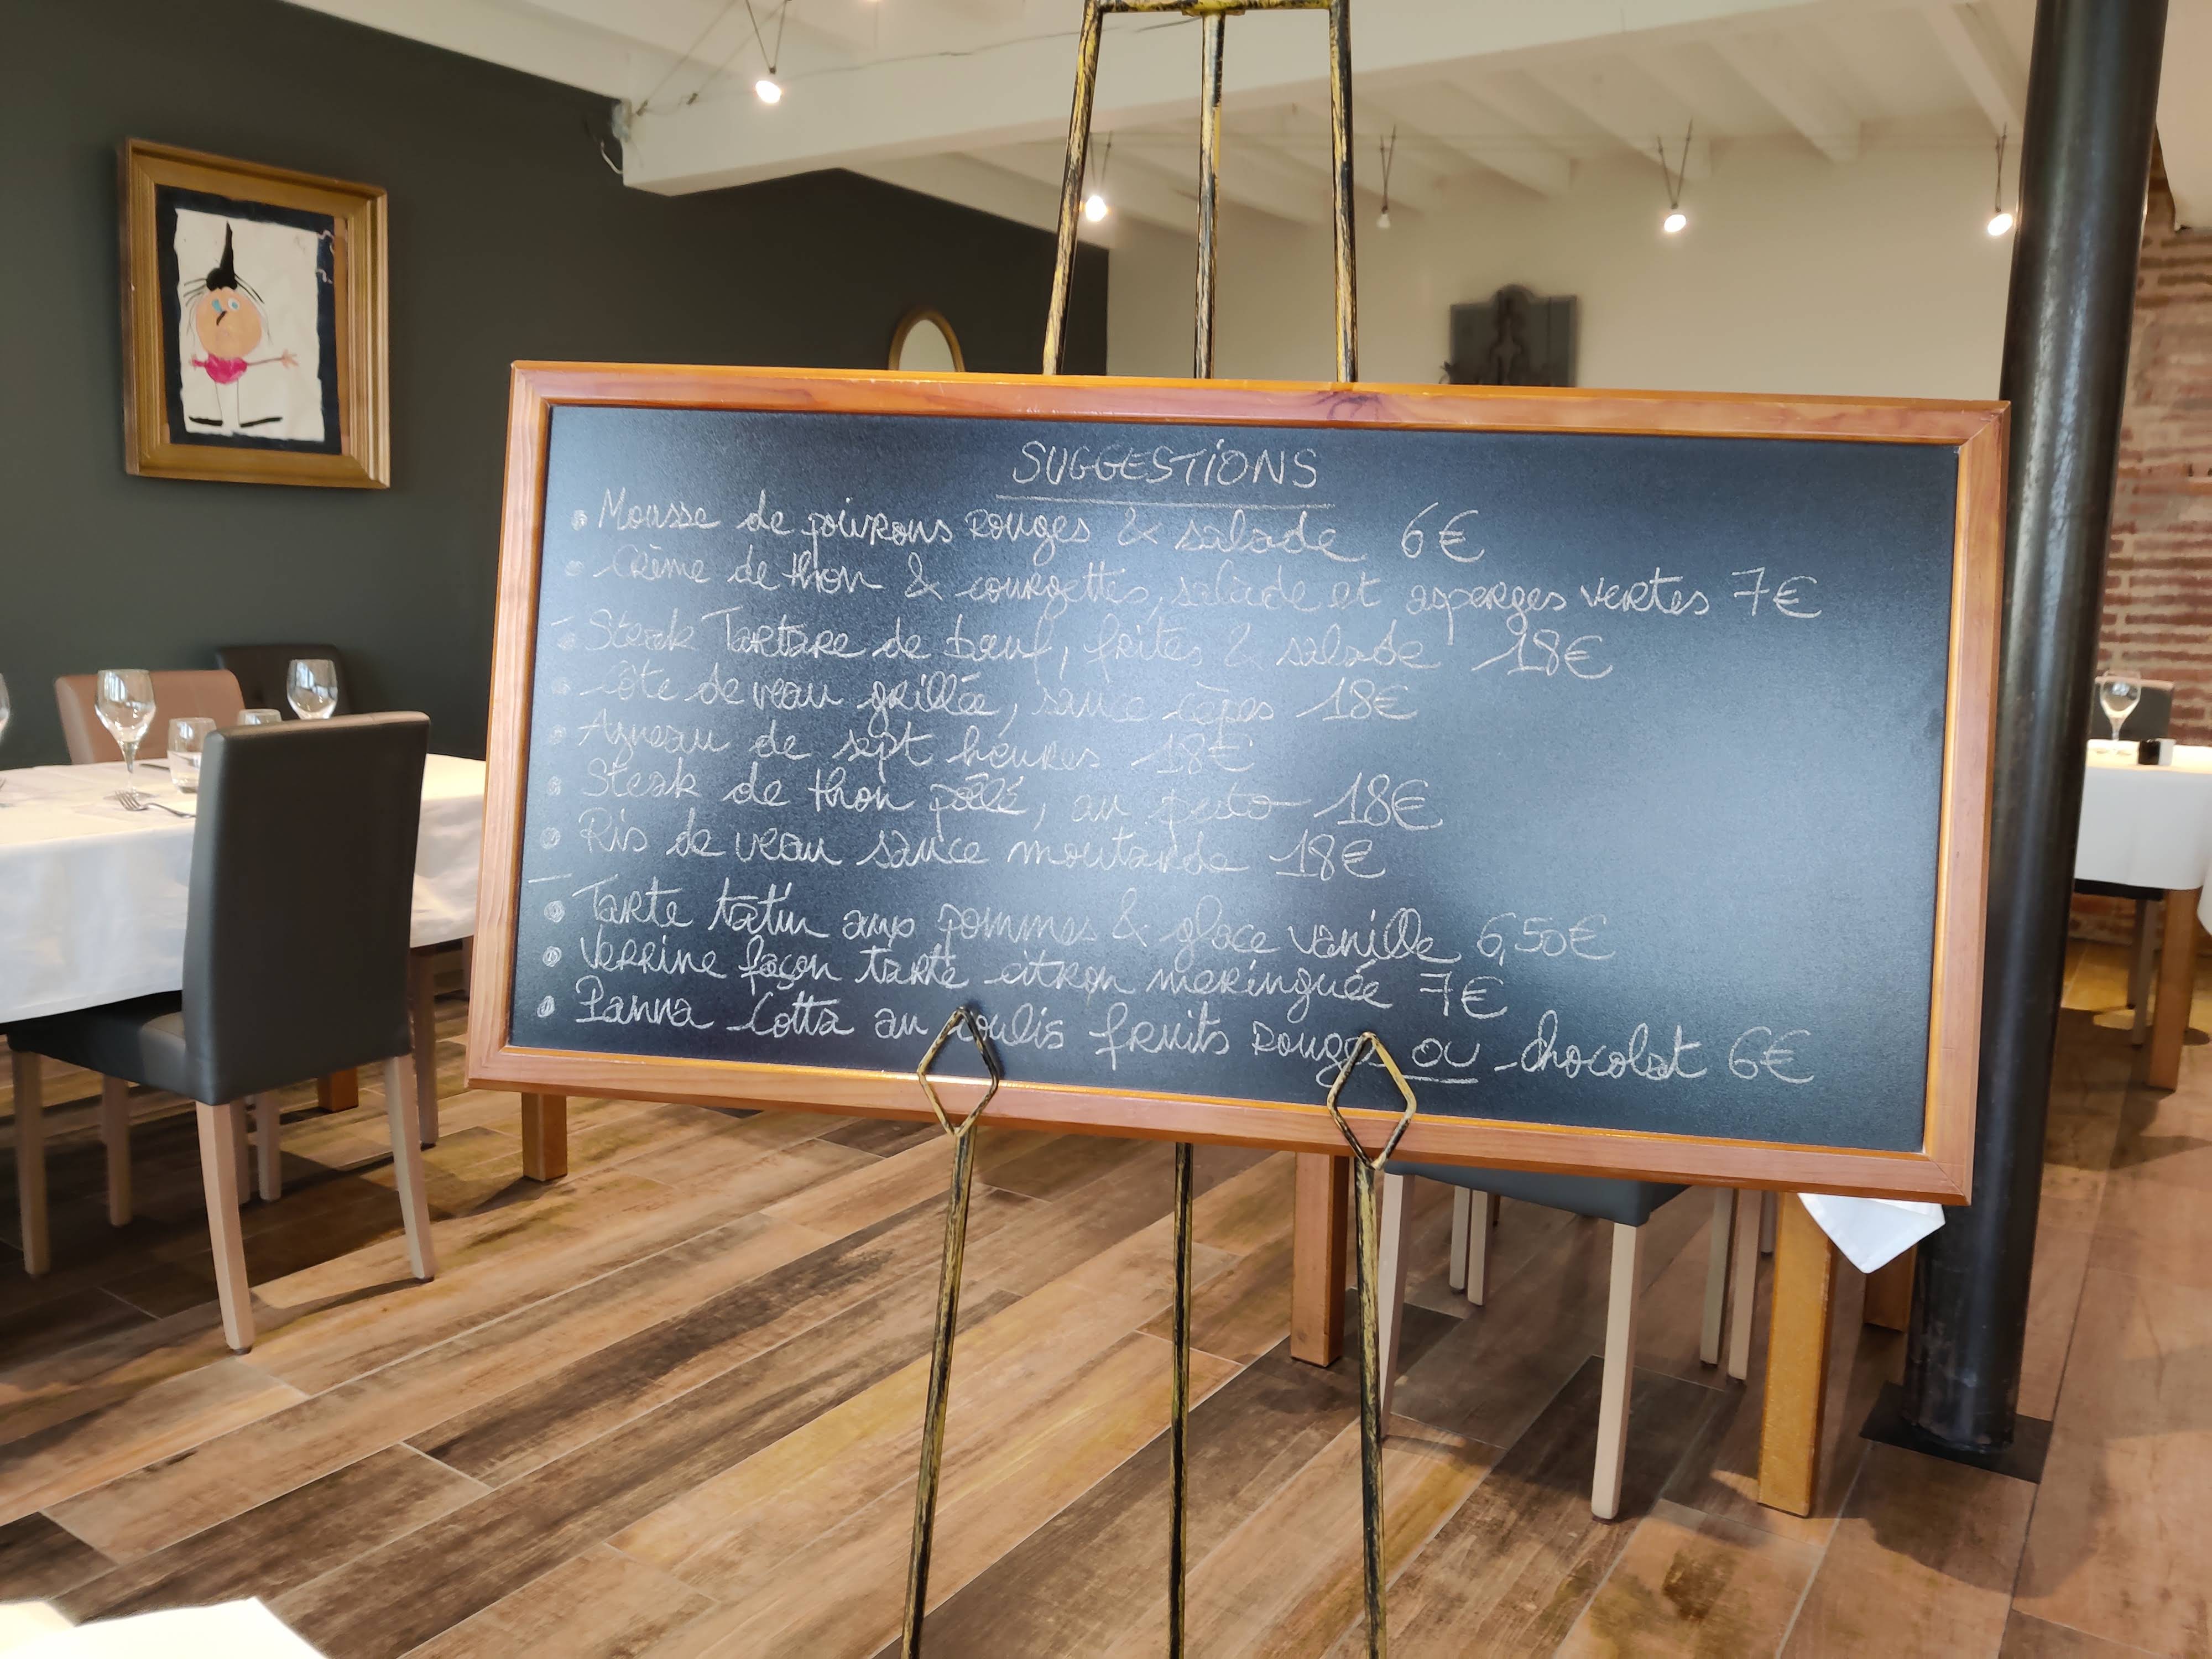 SUGGESTIONS
• Mousse de poivrons rouges & salade 6€
• Crème de thon & courgettes, salade et asperges vertes 7€
- Steak Tartare de bœuf, frites & salade 18€
• Côte de veau grillée, sauce cèpes 18€
• Agneau de sept heures 18€
• Steak de thon pôélé, au pesto 18€
• Ris de veau sauce moutarde 18€
• Tarte tatin aux pommes & glace vanille 6,50€
• Verrine façon tarte citron meringuée 7€
• Panna Cotta au coulis fruits rouges ou chocolat 6€